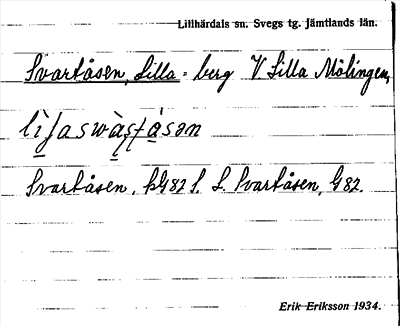 Lillhärdals sn. Svegs tg. Jämtlands län.
Svartåsen, Lilla = berg V Lilla Mölingen,
Svartåsen, G82 S. L. Svartåsen, G 82.
Erik Eriksson 1934.